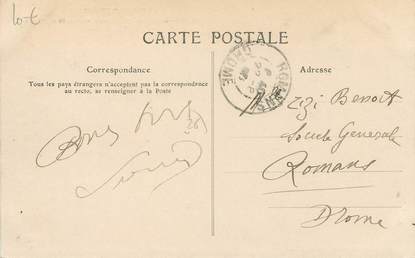 10-€
CARTE POSTALE
Correspondance
Tous les pays étrangers n'acceptent pas la correspondance
au recto, se renseigner à la Poste
Adresse
ROMANS
DROME
Zizi Benoit
Société Generale
Romans
Drome